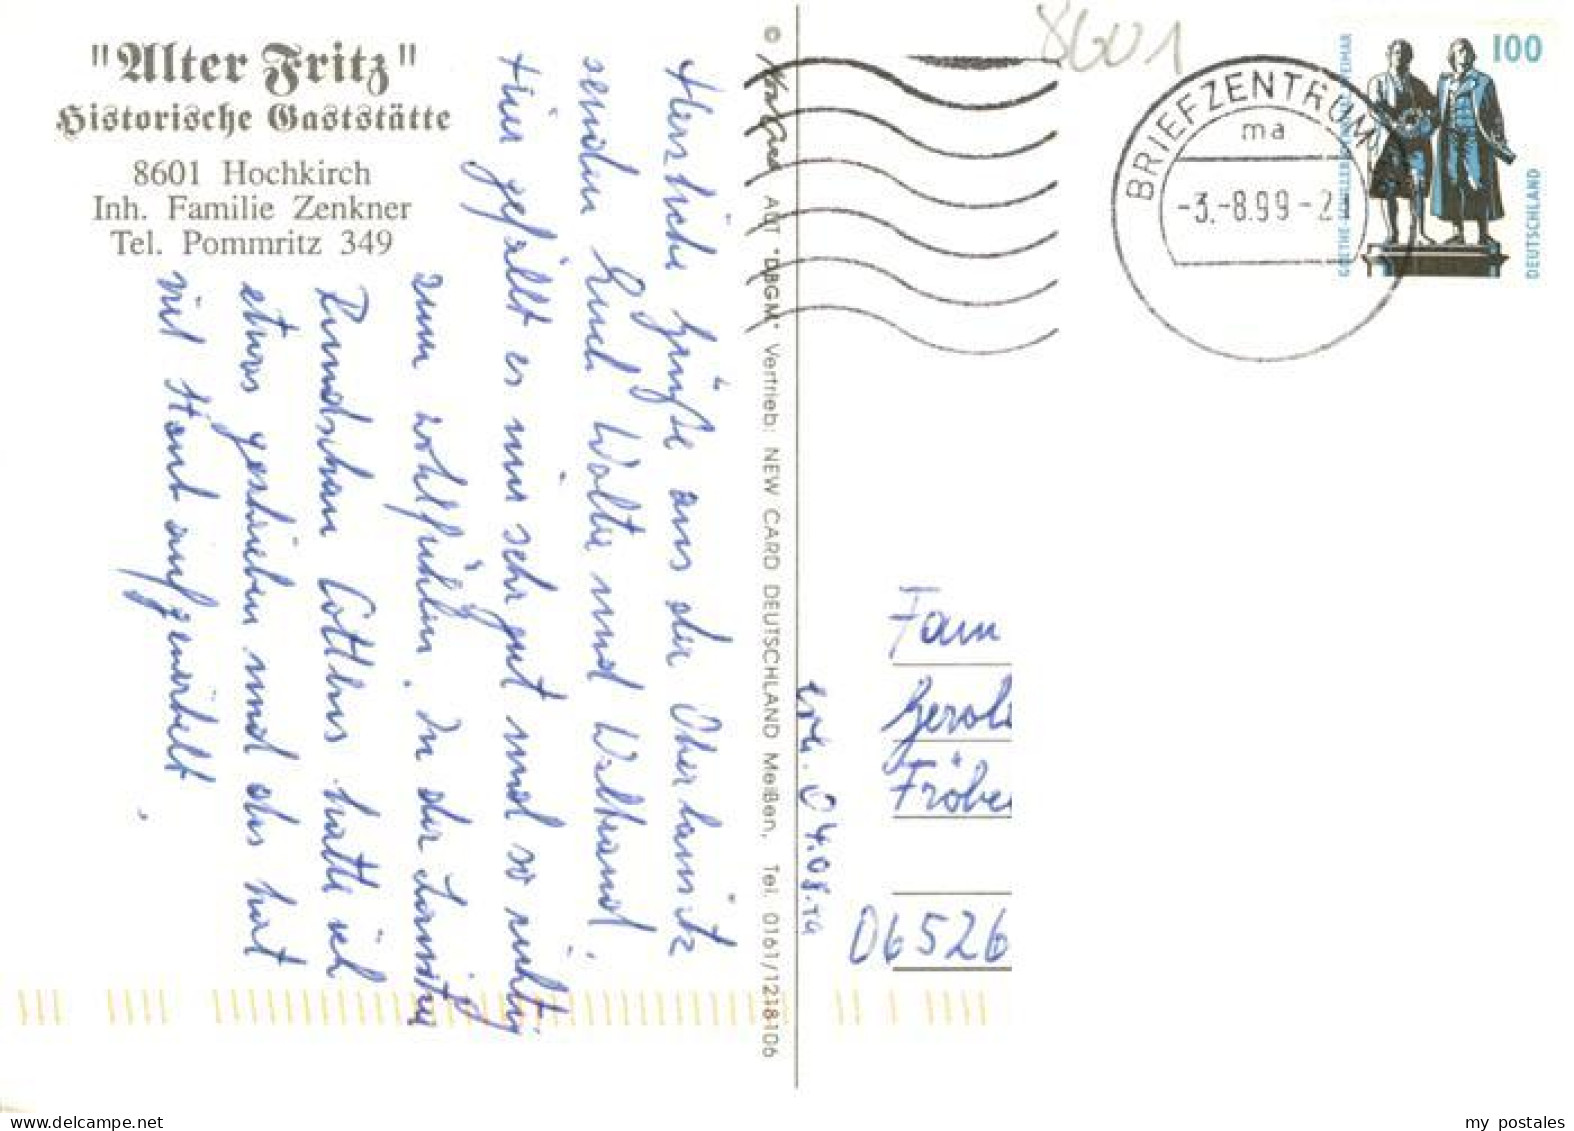 "Alter Fritz"
Historische Gaststätte
8601 Hochkirch
Inh. Familie Zenkner
Tel. Pommritz 349
Herzliche Grüße aus der Oberlausitz
senden Euch Walter und Waltraud.
Hier gefällt es mir sehr gut und so richtig
zum wohlfühlen. In der Lausitzer
Rundschau Cottbus hatte ich
etwas geschrieben und das hat
viel Staub aufgewirbelt.
© ALT "DBGM" Vertrieb: NEW CARD DEUTSCHLAND Meißen, Tel. 0161/1218106
8601
BRIEFZENTRUM
ma
-3.-8.99-21
100
DEUTSCHLAND
GOETHE-SCHILLER WEIMAR
04.08.
Fam
Gerol
Fröbe
06526
my postales